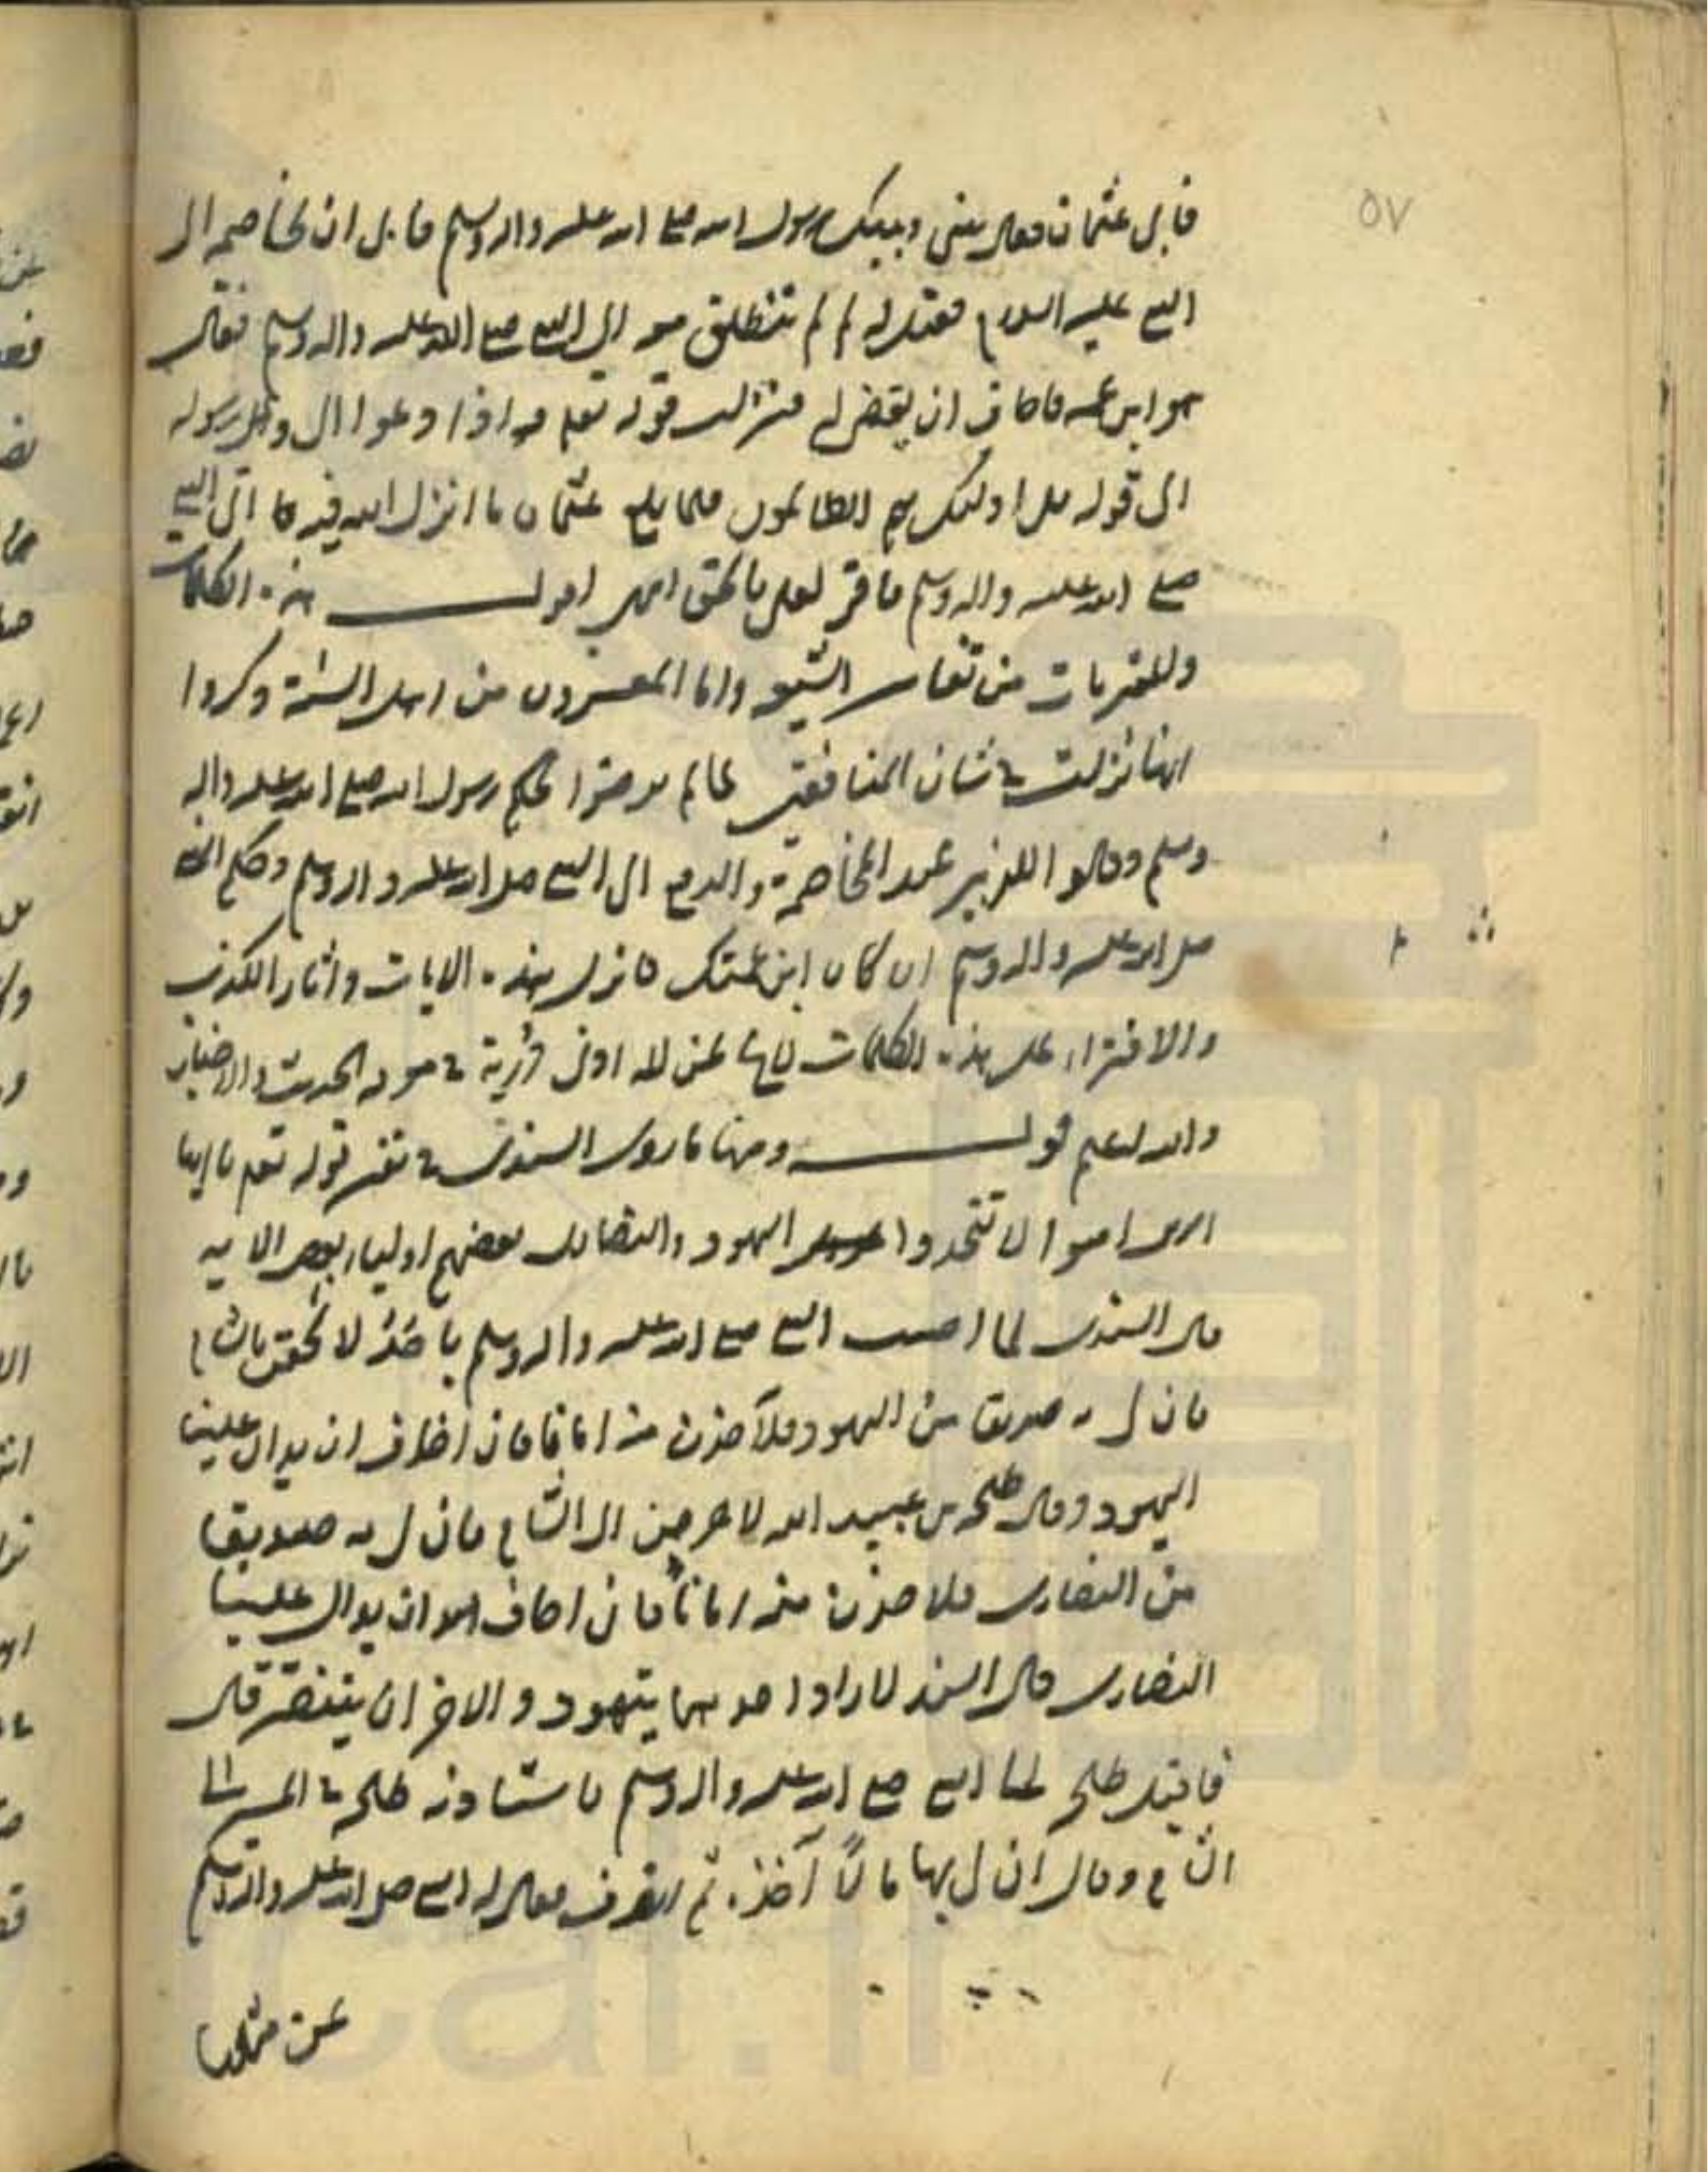 ٥٧
فابى عثمان فقال بيني وبينك رسول الله صلى الله عليه واله وسلم فابى ان يخاصمه الى
النبي عليه السلام فقيل له لم لم تنطلق معه الى النبي صلى الله عليه واله وسلم فقال
هو ابن عمه فاخاف ان يقضى له فنزلت قوله تعلى واذا دعوا الى الله ورسوله
الى قوله بل اولئك هم الظالمون فلما بلغ عثمان ما انزل الله فيه اتى النبي
صلى الله عليه واله وسلم فاقر لعلى بالحق انتهى اقول هذه الكلمات
والمفتريات من تفاسير الشيعة واما المفسرون من اهل السنة ذكروا
انها نزلت في شان المنافقين لما لم يرضوا بحكم رسول الله صلى الله عليه واله
وسلم وقالوا للزبير عند المخاصمة والدفع الى النبي صلى الله عليه واله وسلم وحكم النبي
صلى الله عليه واله وسلم ان كان ابن عمتك فانزل هذه الايات واثار الكذب
والافتراء على هذه الكلمات لمن له ادنى درية في معرفة الحديث والاخبار
والله اعلم قوله ومنها ما روى السدى في تفسير قوله تعلى يا ايها
الذين امنوا لا تتخذوا اليهود والنصارى بعضهم اولياء بعض الايه
قال السدى لما اصيب النبي صلى الله عليه واله وسلم باحد لالحقن بالشام
فان لى به صديقا من اليهود فلاخذن منه امانا فانى اخاف ان يدال علينا
اليهود وقال طلحه بن عبيد الله لاخرجن الى الشام فان لى به صديقا
من النصارى فلاخذن منه امانا فانى اخاف ان يدال علينا
النصارى قال السدى فاراد احدهما يتهود والاخر ان يتنصر قال
فاقبل طلحه الى النبي صلى الله عليه واله وسلم فاستاذنه طلحة في المسير الى
الشام وقال ان لى بها مالاً آخذه ثم انصرف فقال له النبي صلى الله عليه واله وسلم